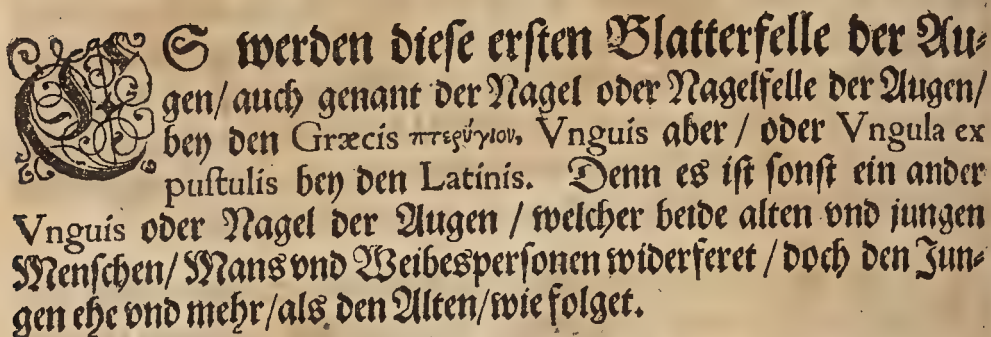 ES werden dieſe erſten Blatterfelle der Au⸗
gen/ auch genant der Nagel oder Nagelfelle der Augen/
bey den Græcis πτερύγιον, Vnguis aber / oder Vngula ex
puſtulis bey den Latinis. Denn es iſt ſonſt ein ander
Vnguis oder Nagel der Augen / welcher beide alten vnd jungen
Menſchen/ Mans vnd Weibesperſonen widerferet / doch den Jun⸗
gen ehe vnd mehr/ als den Alten/ wie folget.